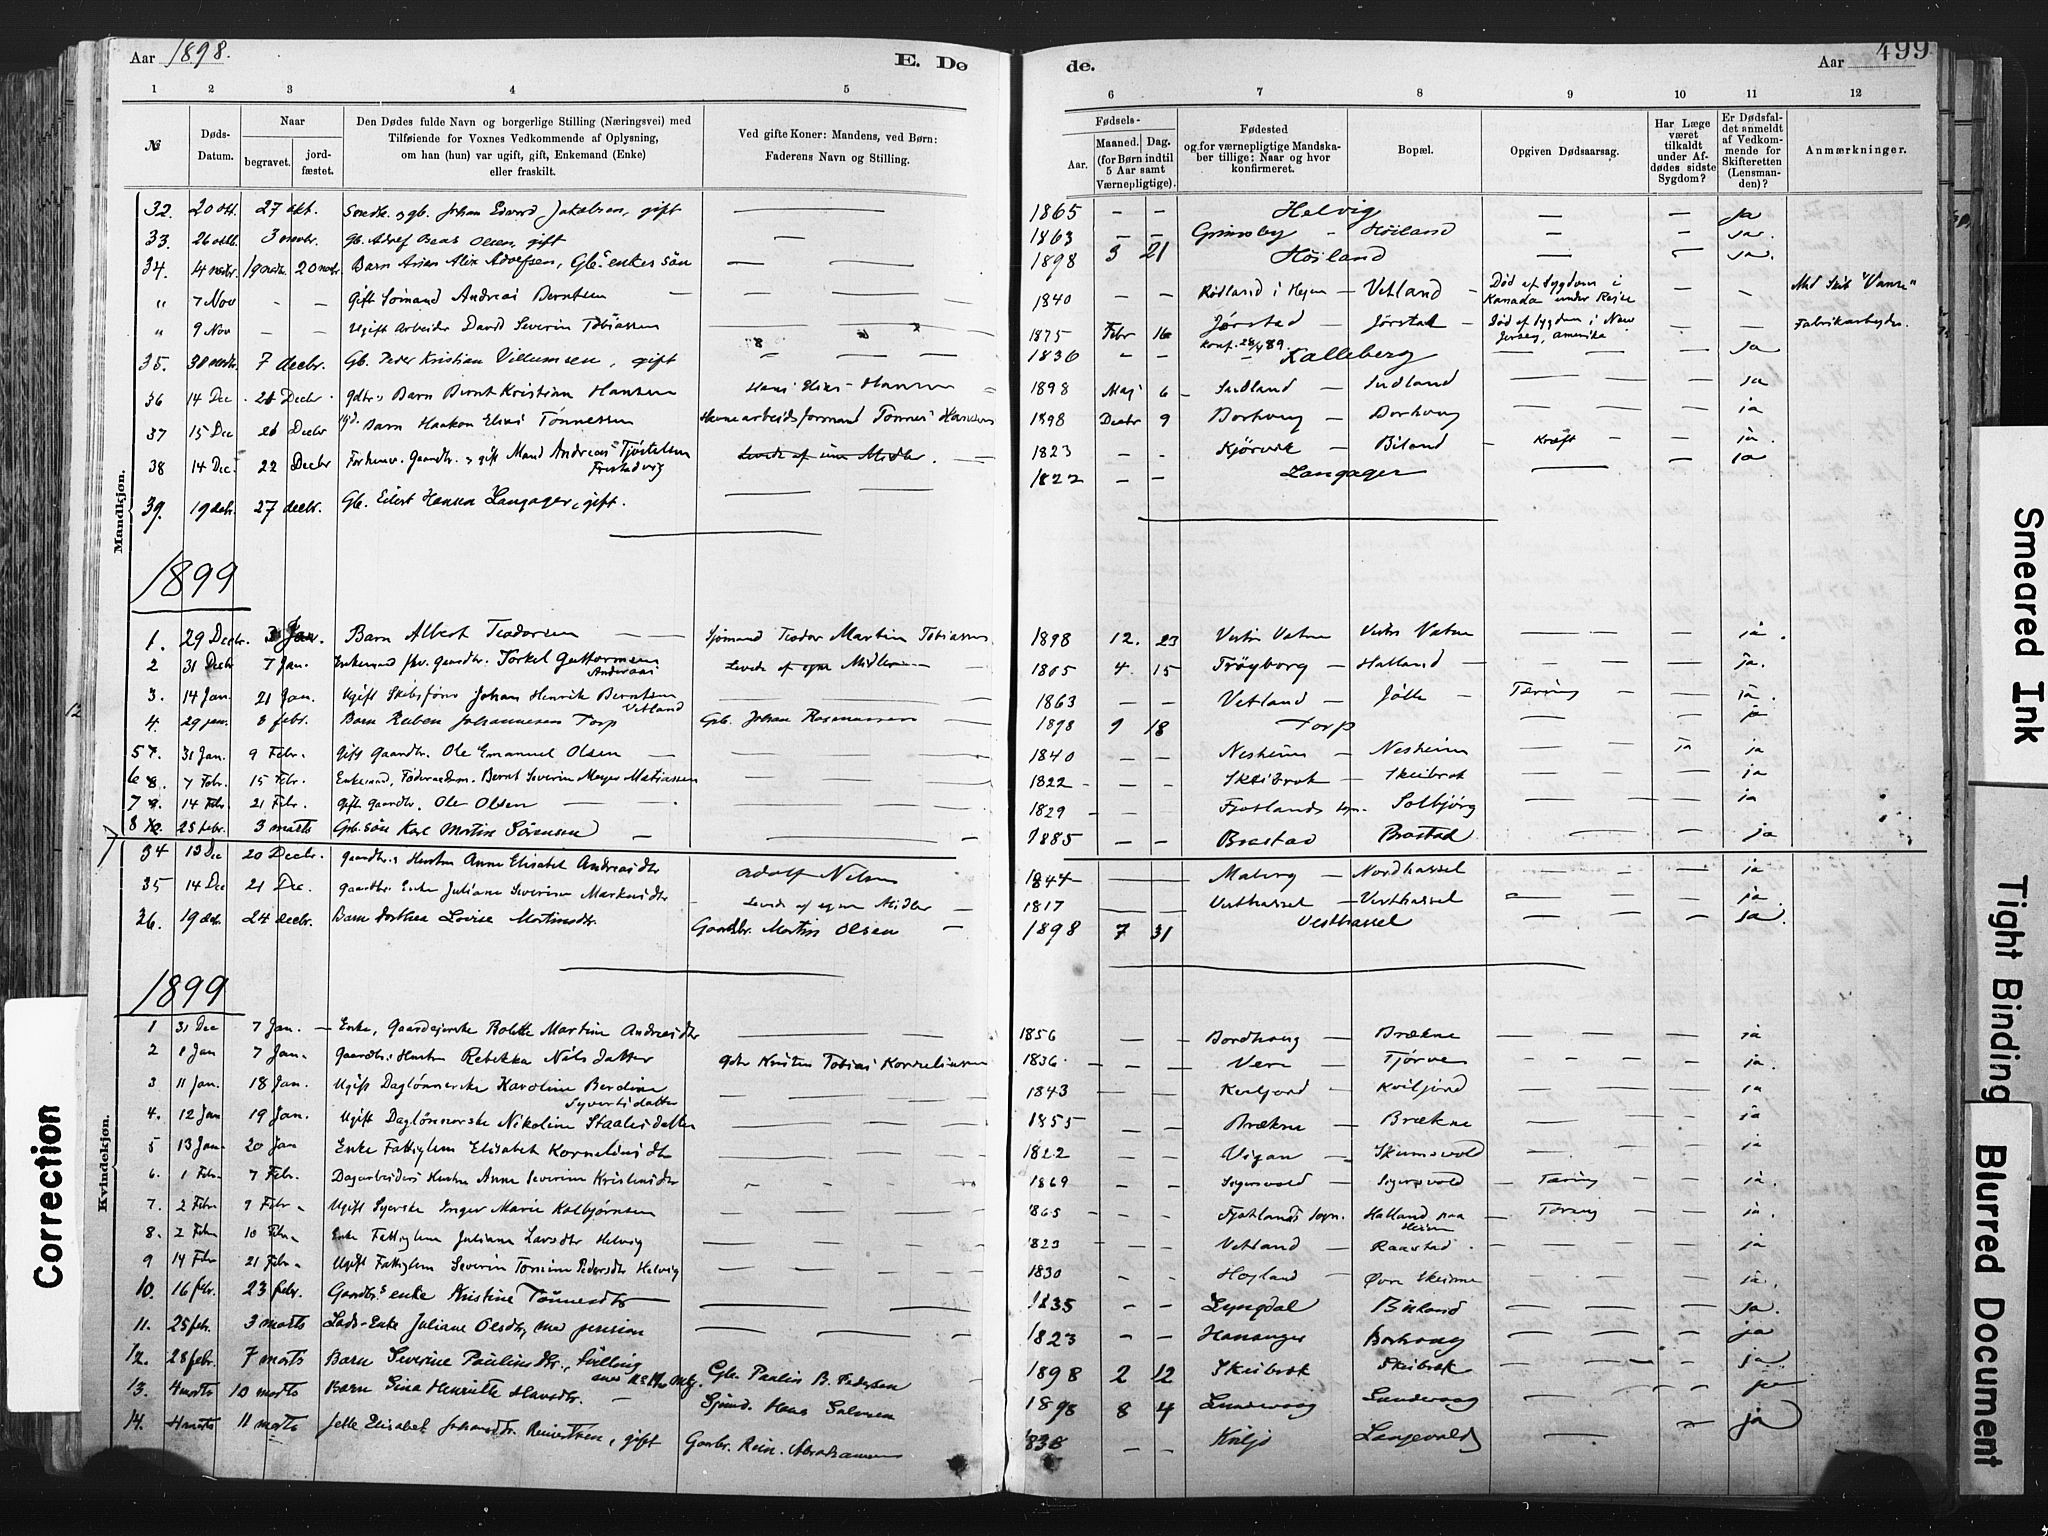 Aar 1898.
E. Dø
de.
Aar
499
1 2 3 4 5 6 7 8 9 10 11 12
№
Døds-Datum.
Naar
begravet. jord-fæstet.
Den Dødes fulde Navn og borgerlige Stilling (Næringsvei) med
Tilføiende for Voxnes Vedkommende af Oplysning,
om han (hun) var ugift, gift, Enkemand (Enke)
eller fraskilt.
Ved gifte Koner: Mandens, ved Børn:
Faderens Navn og Stilling.
Fødsels-
Aar.
Maaned. Dag.
(for Børn indtil
5 Aar samt
Værnepligtige).
Fødested
og for værnepligtige Mandska-
ber tillige: Naar og hvor
konfirmeret.
Bopæl.
Opgiven Dødsaarsag.
Har Læge
været
tilkaldt
under Af-
dødes sidste
Sygdom?
Er Dødsfal-
det anmeldt
af Vedkom-
mende for
Skifteretten
(Lensman-
den)?
Anmærkninger.
Mandkjøn.
32. 20 okt. 27 okt. Johan Edvard Jakobsen, gift — 1865 — — Helvig — — ja
33. 26 oktb. 3 novbr. Gb. Olsen, gift — 1863 — — Grimsby - Höiland — — ja.
34. 14 novbr. 19 novbr. 20 novbr. Barn — 1898 3 21 Höiland — — ja.
" 7 Nov — — Gift Sømand Andreas Berntsen — 1840 — — Vetland — Død af Sygdom i Kanada under Reise — —
" 9 Nov — — Ugift Arbeider David Severin Tobiassen — 1875 Febr 16 Jørstad — Jørstad — Død af Sygdom i New Jersey, Amerika — — Fabrikarbeyder.
35. 30 novbr. 7 decbr. Gb. Peder Kristian Villumsen, gift — 1836 — — Kalleberg — — ja
36 14 Dec 21 Decbr Barn Bernt Kristian Hansen Hans Elias Hansen 1898 Maj 6 Sudland — Sudland — — ja
37 15 Dec 21 Decbr Barn Haakon Elias Tønnessen Havnearbeidsformand Tønnes Hansen 1898 Decbr 9 Borhoug — Borhoug — — ja
38 14 Dec 22 Decbr gift Mand Andreas Tjøstelsen Levede af sine Midler. 1823 — — Kjørvik — Biland — Kræft — — ja.
39. 19 decbr. 27 decbr. Gb. Eilert Hansen Langager, gift. — 1822 — — Langager — — ja
1899
1. 29 Decbr. Jan. Barn Albert Teodorsen — Sjømand Teodor Martin Tobiassen 1898 12. 23 Vestre Vatne Vestre Vatne — — ja.
2 31 Decbr 7 Jan. Enkemand fhv. gaardbr. Torkel Guttormsen Levede af egne Midler — 1805 4. 15 Trøyborg — Halland — — ja.
3. 14 Jan. 21 Jan. Ugift Skibsfører Johan Henrik Berntsen Vetland — 1863 — — Vetland — Jølle — Tæring — — ja.
4. 29 jan. 8 febr. Barn Ruben Johannesen Torp Gb. Johan Rasmussen 1898 9 18 Torp — — ja
5 31 Jan. 9 Febr. Gift gaardbr. Ole Emanuel Olsen — 1840 — — Nesheim — Nesheim — ja ja
6 7 Febr. 15 Febr. Enkemand, Bernt Severin Meyer Matiassen — 1822 — — Skeibrok — Skeibrok — — ja
7 14 Febr 21 Febr. Gift gaardbr. Ole Olsen — 1829 — — Fjotlands sogn. Solbjørg — — ja
8 25 febr. 3 marts Gb. søn Karl Martin Sørensen — 1885 — — Brastad Brastad — — ja
Kvindekjøn.
34 13 Dec 20 Decbr. Gaardbr.s Hustru Anne Elisabet Andreasdtr Adolf Nilsen 1844 — Maberg — Nordhassel — — ja
35 14 Dec 21 Dec. Gaardbr. Enke Juliane Severine Markusdtr Levede af egne Midler — 1817 — Vesthassel — Vesthassel — — ja
36. 19 decbr 24 decbr. Barn Dorthea Lovise Martinsdtr. Gaardbr. Martin Olsen 1898 7 31 Vesthassel — — ja.
1899
1 31 Dec 7 Jan. Enke, Gaardejerske Bolette Martine Andreasdtr — 1856 — — Bordhoug — Brækne — — ja
2 1 Jan 7 Jan. Gaardbr.s Hustru Rebekka Nilsdatter Gbr Kristen Tobias Korneliussen 1836 — — Vere — Tjørve — — ja.
3 11 Jan. 18 Jan. Ugift Daglønnerske Karoline Berdine Syvertsdatter — 1843 — — Kviljord — Kviljord — — ja
4. 12 Jan 19 Jan. Ugift Daglønnerske Nikoline Staalesdatter — 1855 — — Brækne — Brækne — — ja
5 13 Jan 20 Jan Enke Fattiglem Elisabet Korneliusdtr — 1822 — — Vigan — Skumsvold — — ja
6. 1 Febr 7 Febr. Dagarbeiders Hustru Anne Severine Kristensdtr — 1869 — — Sigersvold — Sigersvold — Tæring — — ja.
7. 2 Febr 9 Febr. Ugift Syerske Inger Marie Kolbjørnsen — 1865 — — Fjotlands Sogn. Halland paa Heien — Tæring — — ja.
8. 2 Febr 10 Febr. Enke Fattiglem Juliane Larsdtr Helvig — 1823 — — Vetland — Raastad. — — ja
9 14 Febr 21 Febr. Ugift Fattiglem Severin Tomine Pedersdtr Helvig — 1830 — — Hogland — Øvre Skeime — — ja.
10. 16 febr. 23 febr. Gaardbr.s enke Kristine Tønnesdtr — 1835 — — Lyngdal Biland — — ja.
11. 25 febr. 3 marts Lods-Enke Juliane Olsdtr, med pension — 1823 — — Hananger Borhoug — — ja
12. 28 febr. 7 marts Barn Severine Paulinsdtr., Gb. Paulin B. Pedersen 1898 2 12 Skeibrok Skeibrok — — ja
13. 4 marts 10 marts Barn Gina Henriette Hansdtr. — Sjømd. Hans Salvesen 1898 8 4 Lundevaag Lundevaag — — ja
14. 4 marts 11 marts Jelle Elisabet Johansdtr. Reinertsen, gift Gaardbr. Rein. Abrahamsen 1838 — — Kviljo Langevold — — ja
Correction
Smeared Ink
Tight Binding
Blurred Document